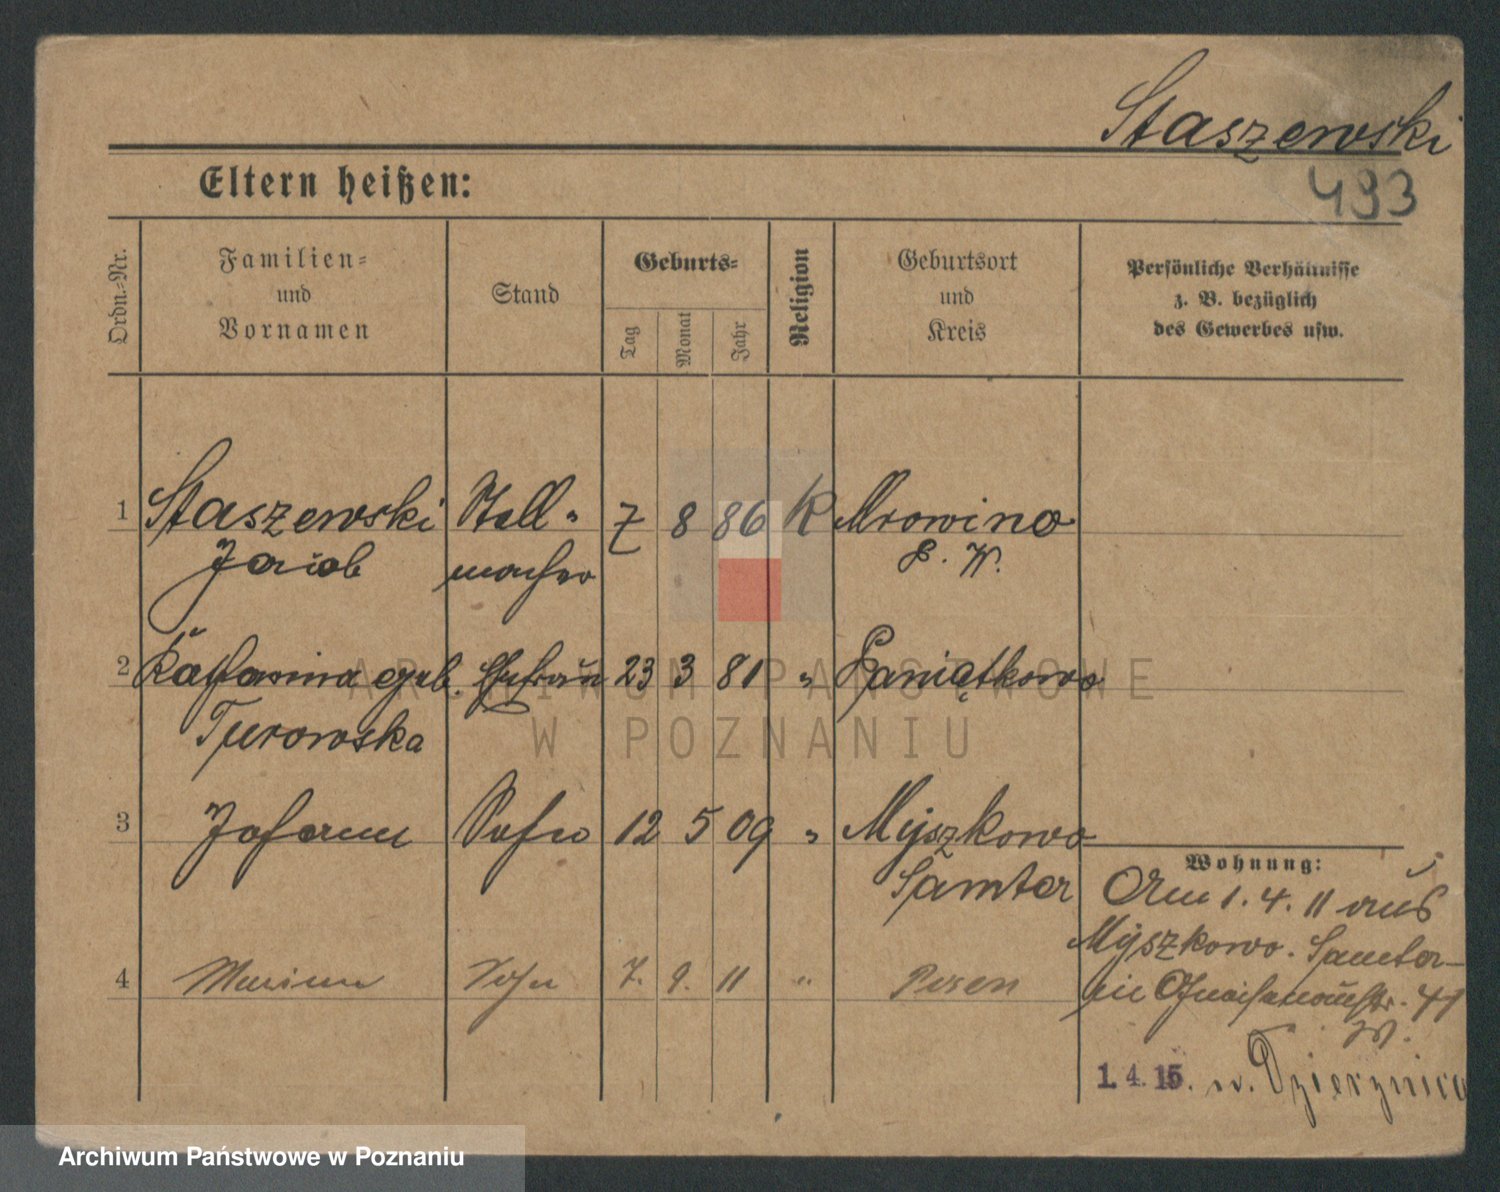 Staszewski
493
Eltern heißen:
Ordn.-Nr.
Familien-
und
Vornamen
Stand
Geburts-
Tag
Monat
Jahr
Religion
Geburtsort
und
Kreis
Persönliche Verhältnisse
z. B. bezüglich
des Gewerbes usw.
1 Staszewski Stell- 7 8 86 K Mrowino
Jacob macher P. W.
2 Katharina geb. Ehefrau 23 3 81 " Pamiątkowo
Turowska
3 Johann Sohn 12 5 09 " Myszkowo
Samter
4 Marian Sohn 7. 9. 11 " Posen
Wohnung:
Am 1. 4. 11 aus
Myszkowo. Samter
41
W.
1.4.15. n. Dzierznica
ARCHIWUM PAŃSTWOWE
W POZNANIU
Archiwum Państwowe w Poznaniu